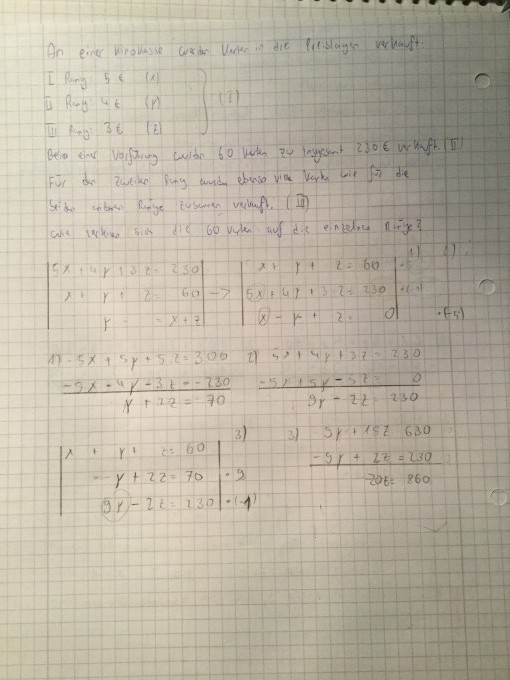 An einer Kinokasse werden Karten in die Preislagen verkauft.
I Rang: 5 € (x)
II Rang: 4 € (y) (I)
III Rang: 3 € (z)
Bei einer Vorführung wurden 60 Karten zu insgesamt 230 € verkauft. (II)
Für den zweiten Rang wurden ebenso viele Karten wie für die
beiden anderen Ränge zusammen verkauft. (III)
Wie verteilen sich die 60 Karten auf die einzelnen Ränge?
1) 2)
5x + 4y + 3z = 230 x + y + z = 60 ·5
x + y + z = 60 -> 5x + 4y + 3z = 230 ·(-1)
y = x + z x - y + z = 0 ·(-5)
1) 5x + 5y + 5z = 300 2) 5x + 4y + 3z = 230
-5x - 4y - 3z = -230 -5x + 5y - 5z = 0
y + 2z = 70 9y - 2z = 230
x + y + z = 60 3) 3) 9y + 18z 630
y + 2z = 70 ·9 -9y + 2z = 230
9y - 2z = 230 ·(-1) 20z = 860